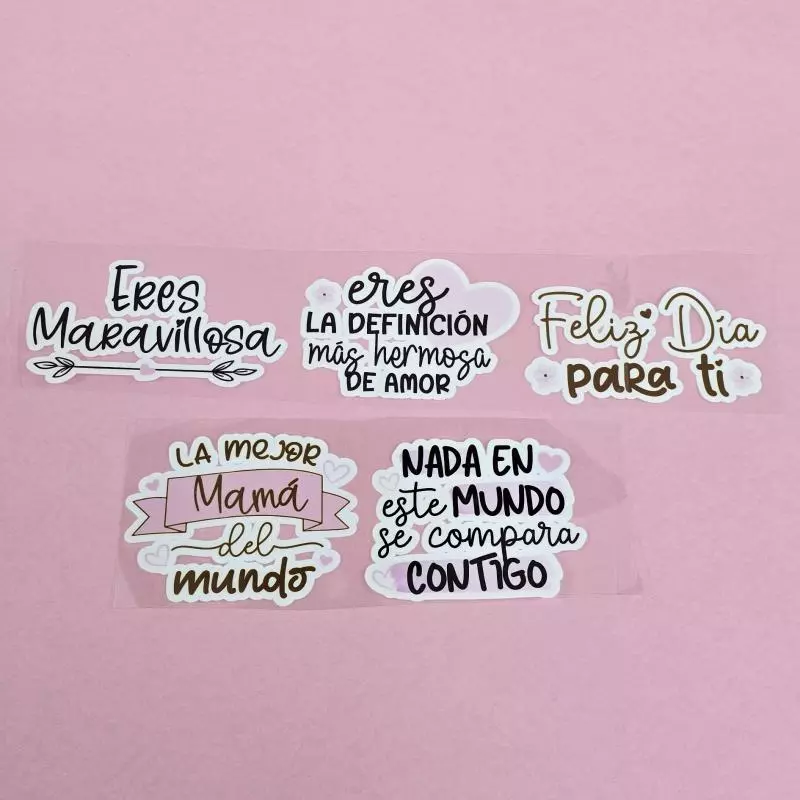 Eres
Maravillosa
eres
LA DEFINICIÓN
más hermosa
DE AMOR
Feliz Día
para ti
LA MEJOR
Mamá
del
mundo
NADA EN
este MUNDO
se compara
CONTIGO